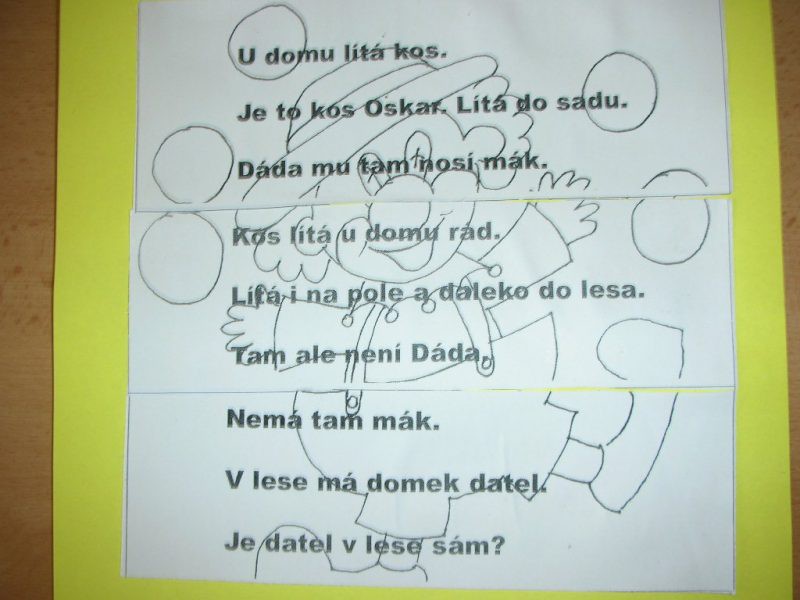 U domu lítá kos.
Je to kos Oskar. Lítá do sadu.
Dáda mu tam nosí mák.
Kos lítá u domu rád.
Lítá i na pole a daleko do lesa.
Tam ale není Dáda.
Nemá tam mák.
V lese má domek datel.
Je datel v lese sám?